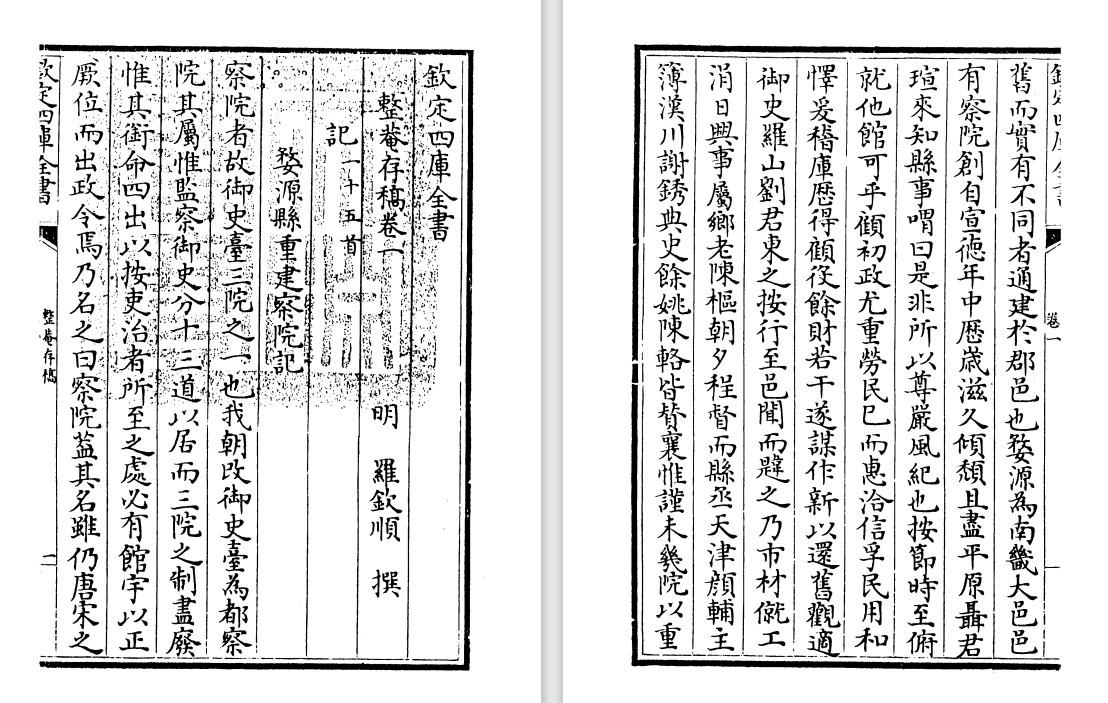 欽定四庫全書
整菴存稿卷一
明 羅欽順 撰
記一十五首
婺源縣重建察院記
察院者故御史臺三院之一也我朝改御史臺為都察
院其屬惟監察御史分十三道以居而三院之制盡廢
惟其銜命四出以按吏治者所至之處必有館宇以正
厥位而出政令焉乃名之曰察院葢其名雖仍唐宋之
欽定四庫全書
整菴存稿
一
卷一
舊而實有不同者通建於郡邑也婺源為南畿大邑邑
有察院創自宣德年中歴歲滋久傾頽且盡平原聶君
瑄來知縣事喟曰是非所以尊嚴風紀也按節時至俯
就他館可乎顧初政尤重勞民已而惠洽信孚民用和
懌爰稽庫歴得顧役餘財若干遂謀作新以還舊觀適
御史羅山劉君東之按行至邑聞而韙之乃市材僦工
涓日興事屬鄉老陳樞朝夕程督而縣丞天津顔輔主
簿漢川謝銹典史餘姚陳輅皆賛襄惟謹未幾院以重